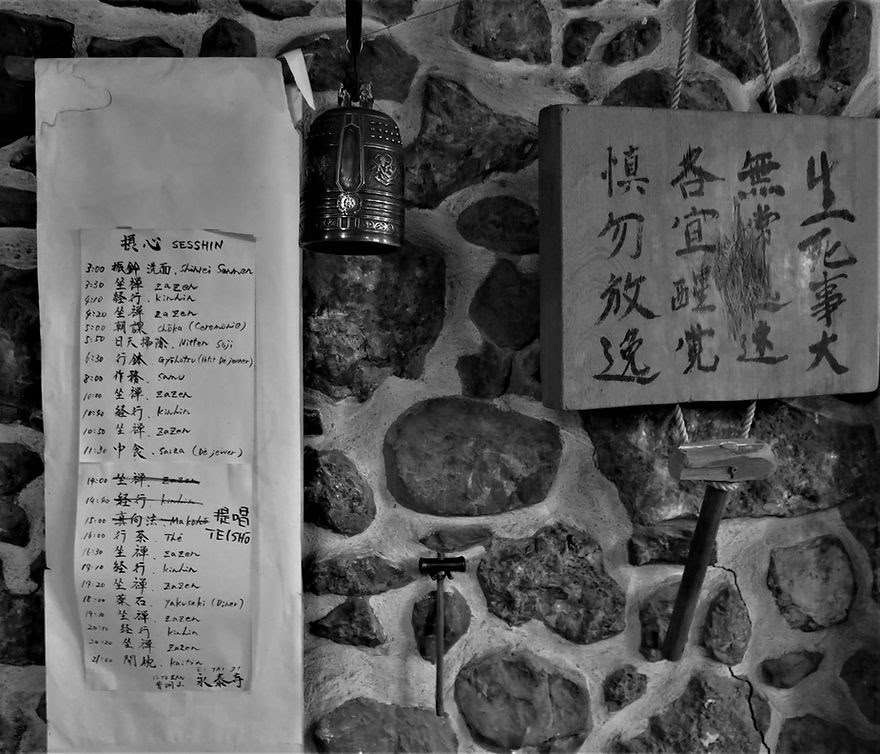 摂心 SESSHIN
3:00 振鈴 洗面. Shinrei Sanmen
3:30 坐禅. zazen
4:10 経行. kinhin
4:20 坐禅 zazen
5:00 朝課. chôka (Ceremonie)
5:50 日天掃除. Nitten Sôji
6:30 行鉢. Gyôhatsu (Petit Déjeuner)
8:00 作務. samu
10:00 坐禅. zazen
10:40 経行. kinhin
10:50 坐禅. zazen
11:30 中食. saiza (Déjeuner)
14:00 坐禅. zazen
14:40 経行. kinhin
15:00 真向法. Makoho 提唱 TEISHO
16:00 行茶. Thé
16:30 坐禅. zazen
経行. kinhin
坐禅. zazen
18:00 薬石. Yakuseki (Diner)
坐禅. zazen
経行. kinhin
坐禅 zazen
21:00 開枕. Kaitin
EI TAI JI
永泰寺
生死事大
無常速
各宜醒覚
慎勿放逸